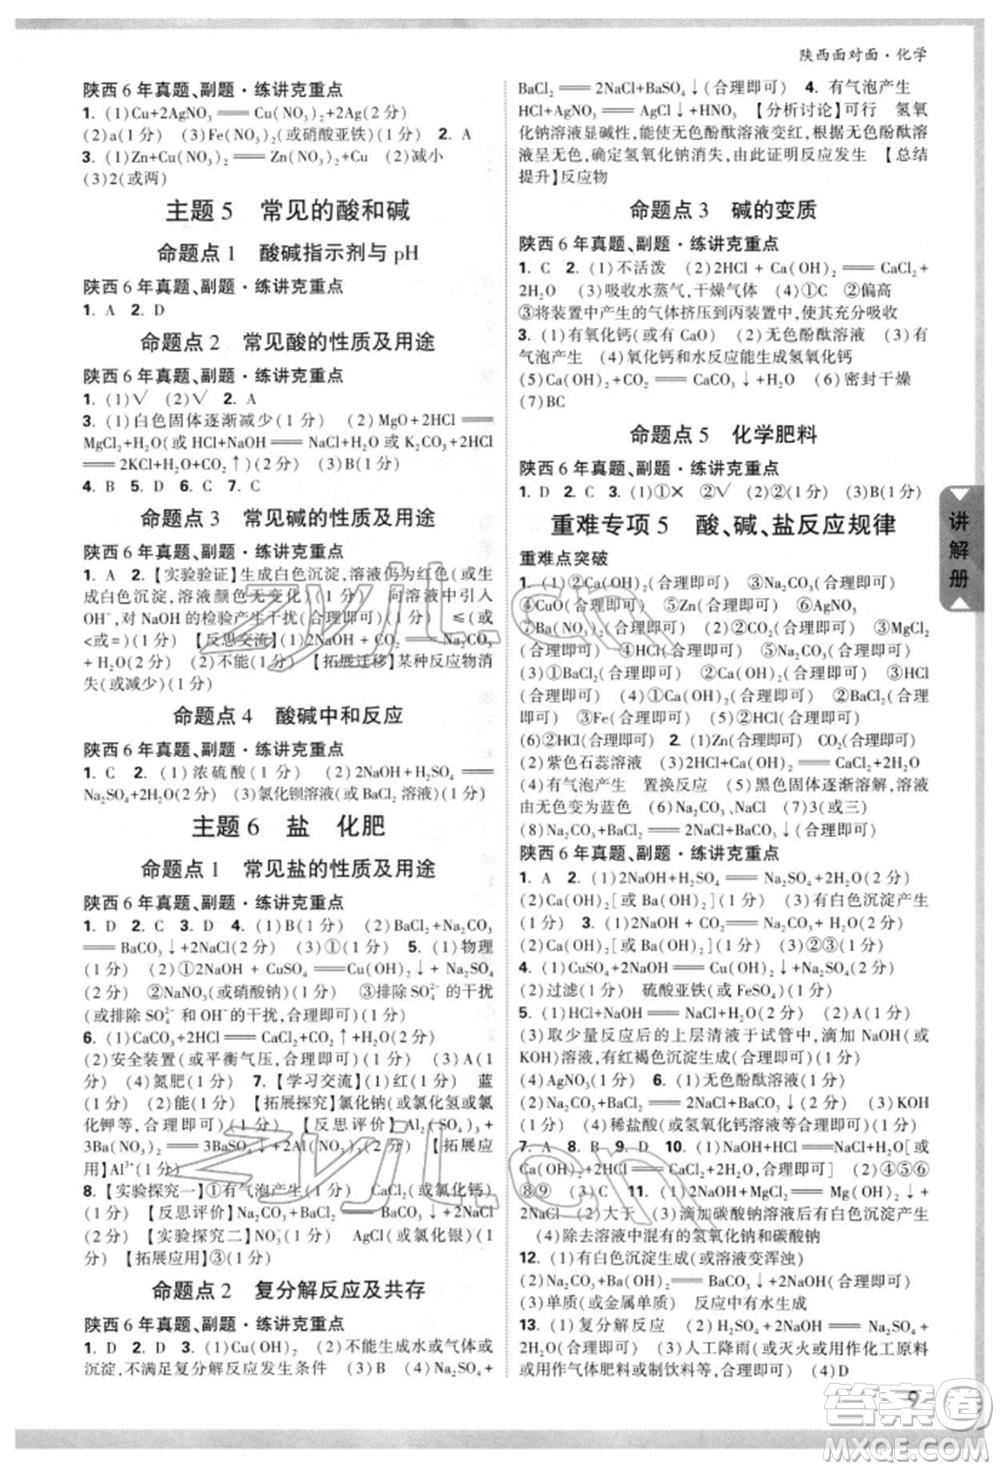 陕西面对面·化学
陕西6年真题、副题·练讲克重点
1. (1)Cu+2AgNO₃══Cu(NO₃)₂+2Ag(2分)
(2)a(1分) (3)Fe(NO₃)₂(或硝酸亚铁)(1分) 2. A
3. (1)Zn+Cu(NO₃)₂══Zn(NO₃)₂+Cu (2)减小
(3)2(或两)
主题5 常见的酸和碱
命题点1 酸碱指示剂与pH
陕西6年真题、副题·练讲克重点
1. A 2. D
命题点2 常见酸的性质及用途
陕西6年真题、副题·练讲克重点
1. (1)√ (2)√ 2. A
3. (1)白色固体逐渐减少(1分) (2)MgO+2HCl══
MgCl₂+H₂O(或HCl+NaOH══NaCl+H₂O或K₂CO₃+2HCl
══2KCl+H₂O+CO₂↑)(2分) (3)B(1分)
4. B 5. D 6. A
命题点3 常见碱的性质及用途
陕西6年真题、副题·练讲克重点
1. A 2. 【实验验证】生成白色沉淀,溶液仍为红色(或白色
沉淀,溶液颜色无变化)(1分) 向溶液中引入
OH⁻,对OH⁻的检验有干扰(1分) ≤(或
<或=)(1分) 【反思交流】(1)NaOH+CO₂══Na₂CO₃
+H₂O(2分) (2)不能(1分) 【拓展迁移】某种反应物消
失(或减少)(1分)
命题点4 酸碱中和反应
陕西6年真题、副题·练讲克重点
1. C 2. A 3. (1)浓硫酸(1分) (2)2NaOH+H₂SO₄══
Na₂SO₄+2H₂O(2分) (3)氯化钡溶液(或BaCl₂溶液)(1分)
主题6 盐 化肥
命题点1 常见盐的性质及用途
陕西6年真题、副题·练讲克重点
1. D 2. C 3. D 4. (1)D(1分) (2)BaCl₂+Na₂CO₃
══BaCO₃↓+2NaCl(2分) (3)①(1分) 5. (1)物理
(1分) (2)①2NaOH+CuSO₄══Cu(OH)₂↓+Na₂SO₄
(2分) ②NaNO₃(或硝酸钠)(1分) ③排除SO₄²⁻的干扰
(或排除SO₄²⁻和OH⁻的干扰,合理即可)(1分)
6. (1)CaCO₃+2HCl══CaCl₂+CO₂↑+H₂O(2分)
(2)安全装置(或平衡气压,合理即可)(1分) (3)A(1分)
(4)氮肥(1分) 7. 【学习交流】(1)红(1分) 蓝
(1分) (2)能(1分) 【拓展探究】氯化钠(或氯化氢或氯化
钾等,合理即可)(1分) 【反思评价】Al₂(SO₄)₃+
3Ba(NO₃)₂══3BaSO₄↓+2Al(NO₃)₃(2分) 【拓展应
用】Al³⁺(1分)
8. 【实验探究一】①有气泡产生(1分) CaCl₂(或氯化钙)
(1分) 【反思评价】Na₂CO₃+BaCl₂══BaCO₃↓+2NaCl
(2分) 【实验探究二】NO₃⁻(1分) AgCl(或氯化银)(1分)
【拓展应用】③(1分)
命题点2 复分解反应及共存
陕西6年真题、副题·练讲克重点
1. C 2. B 3. (1)Cu(OH)₂(1分) (2)不能生成水或气体或
沉淀,不满足复分解反应发生条件 (3)B 4. Na₂SO₄+
BaCl₂══2NaCl+BaSO₄↓(合理即可) 4. 有气泡产生
HCl+AgNO₃══AgCl↓+HNO₃ 【分析讨论】可行 氢氧
化钠溶液显碱性,能使无色酚酞溶液变红,根据无色酚酞溶
液呈无色,确定氢氧化钠消失,由此证明反应发生 【总结
提升】反应物
命题点3 碱的变质
陕西6年真题、副题·练讲克重点
1. C 2. (1)不活泼 (2)2HCl+Ca(OH)₂══CaCl₂
+2H₂O (3)①吸收水蒸气,干燥气体 ②偏高
③将装置中产生的气体挤压到丙装置中,使其充分吸收
3. (1)有氧化钙(或有CaO) (2)无色酚酞溶液 (3)有
气泡产生 (4)氧化钙和水反应能生成氢氧化钙
(5)Ca(OH)₂+CO₂══CaCO₃↓+H₂O (6)密封干燥
(7)BC
命题点5 化学肥料
陕西6年真题、副题·练讲克重点
1. D 2. D 3. (1)①× ②√ (2)②(1分) (3)B(1分)
重难专项5 酸、碱、盐反应规律
重难点突破
1. (1)①②Ca(OH)₂(合理即可) ③Na₂CO₃(合理即可)
④CuO(合理即可) ⑤Zn(合理即可) ⑥AgNO₃
⑦Ba(NO₃)₂(合理即可) (2)①CO₂(合理即可) ③MgCl₂
(合理即可) ④Na₂CO₃(合理即可)
(3)①BaCl₂(合理即可) ②Ca(OH)₂(合理即可) ③HCl
(合理即可) (4)①Ca(OH)₂(合理即可) ②BaCl₂(合
理即可) ③Fe(合理即可) (5)②HCl(合理即可)
(6)②HCl(合理即可) 2. (1)Zn(合理即可) CO₂(合理即可)
(2)紫色石蕊溶液 (3)2HCl(合理即可)
(4)有气泡产生 置换反应 (5)黑色固体逐渐溶解,溶液
由无色变为蓝色 (6)Na₂CO₃、NaCl (7)3(或三)
(8)Na₂CO₃+BaCl₂══BaCO₃↓+2NaCl(合理即可)
陕西6年真题、副题·练讲克重点
1. A 2. (1)2NaOH+H₂SO₄══Na₂SO₄+2H₂O(2分)
(2)Ca(OH)₂[或Ba(OH)₂](1分) (3)有白色沉淀产生
(1分) 3. (1)2NaOH+CO₂══Na₂CO₃+H₂O(2分)
(2)Ca(OH)₂[或Ba(OH)₂](1分) (3)②③(2分)
(2)过滤(1分) 硫酸亚铁(或FeSO₄)(1分)
(3)取少量反应后的上层清液于试管中,滴加NaOH(或
KOH)溶液,有红褐色沉淀生成(合理即可)(1分)
(4)AgNO₃(1分) 6. (1)无色酚酞溶液(1分)
(1分) (4)稀盐酸(或氢氧化钙溶液等,合理即可)(1分)
⑧⑨) 10. C 11. (1)2NaOH+MgCl₂══Mg(OH)₂↓
+2NaCl (2)大于 (3)滴加碳酸钠溶液有白色沉淀产生
(4)除去溶液中混有的氢氧化钠和碳酸钠
12. (1)有白色沉淀生成(或溶液变浑浊)
(2)Na₂CO₃+Ba(OH)₂══BaCO₃↓+2NaOH(合理即可)
(3)单质(或金属单质) 反应中有水生成
13. (1)复分解反应 (2)H₂SO₄+BaCl₂══BaSO₄↓+
2HCl(合理即可) (3)人工降雨(或灭火或用作化工原料
或用作气体肥料或制饮料等,合理即可) (4)D
讲解册
9
答案圈
MXQE.COM
zyjl.cn